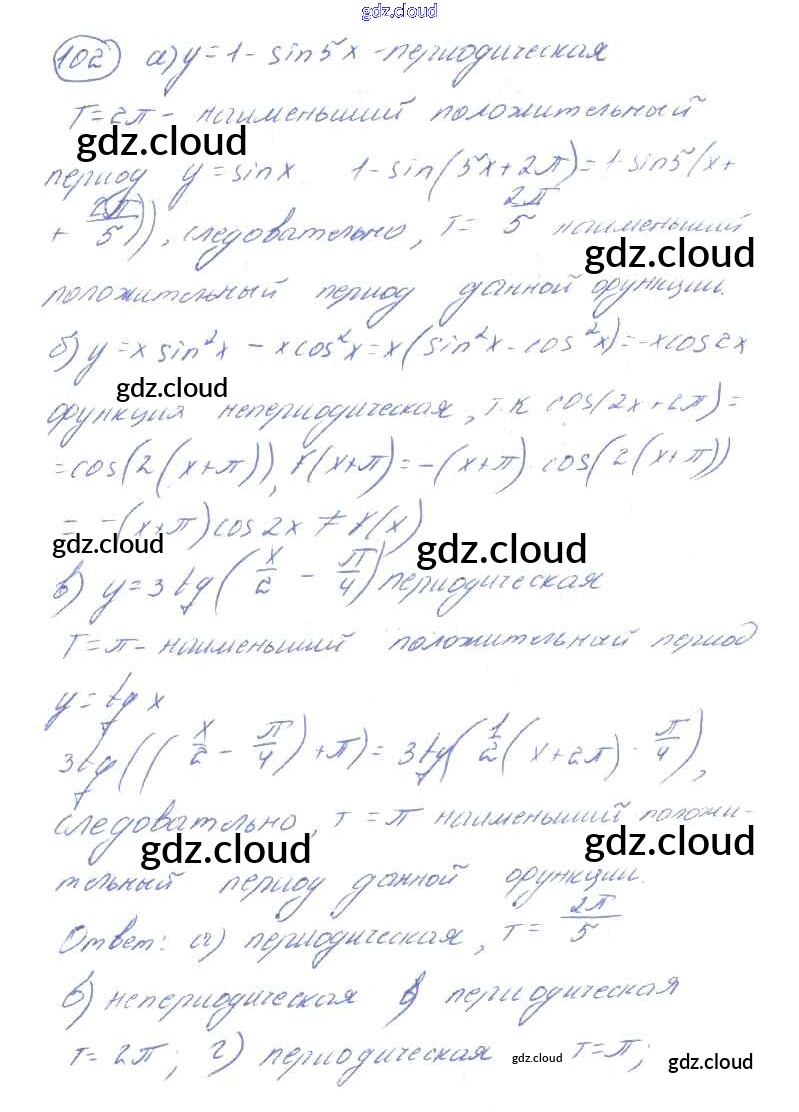 gdz.cloud
102 а) y = 1 - sin5x - периодическая
T = 2π - наименьший положительный
gdz.cloud
период y = sinx 1 - sin(5x + 2π) = 1 - sin5(x +
+ 2π/5)), следовательно, T = 2π/5 наименьший
gdz.cloud
положительный период данной функции.
б) y = x sin²x - x cos²x = x(sin²x - cos²x) = -x cos2x
gdz.cloud
функция непериодическая, т.к cos(2x + 2π) =
= cos(2(x + π)), y(x + π) = -(x + π) · cos(2(x + π))
= -(x + π) cos2x ≠ y(x)
gdz.cloud gdz.cloud
в) y = 3 tg(x/2 - π/4) периодическая
T = π - наименьший положительный период
y = tg x
3tg((x/2 - π/4) + π) = 3tg(1/2(x + 2π) - π/4),
следовательно, T = π наименьший положи-
gdz.cloud gdz.cloud
тельный период данной функции.
Ответ: а) периодическая, T = 2π/5
б) непериодическая в) периодическая
T = 2π; г) периодическая gdz.cloud T = π;
gdz.cloud